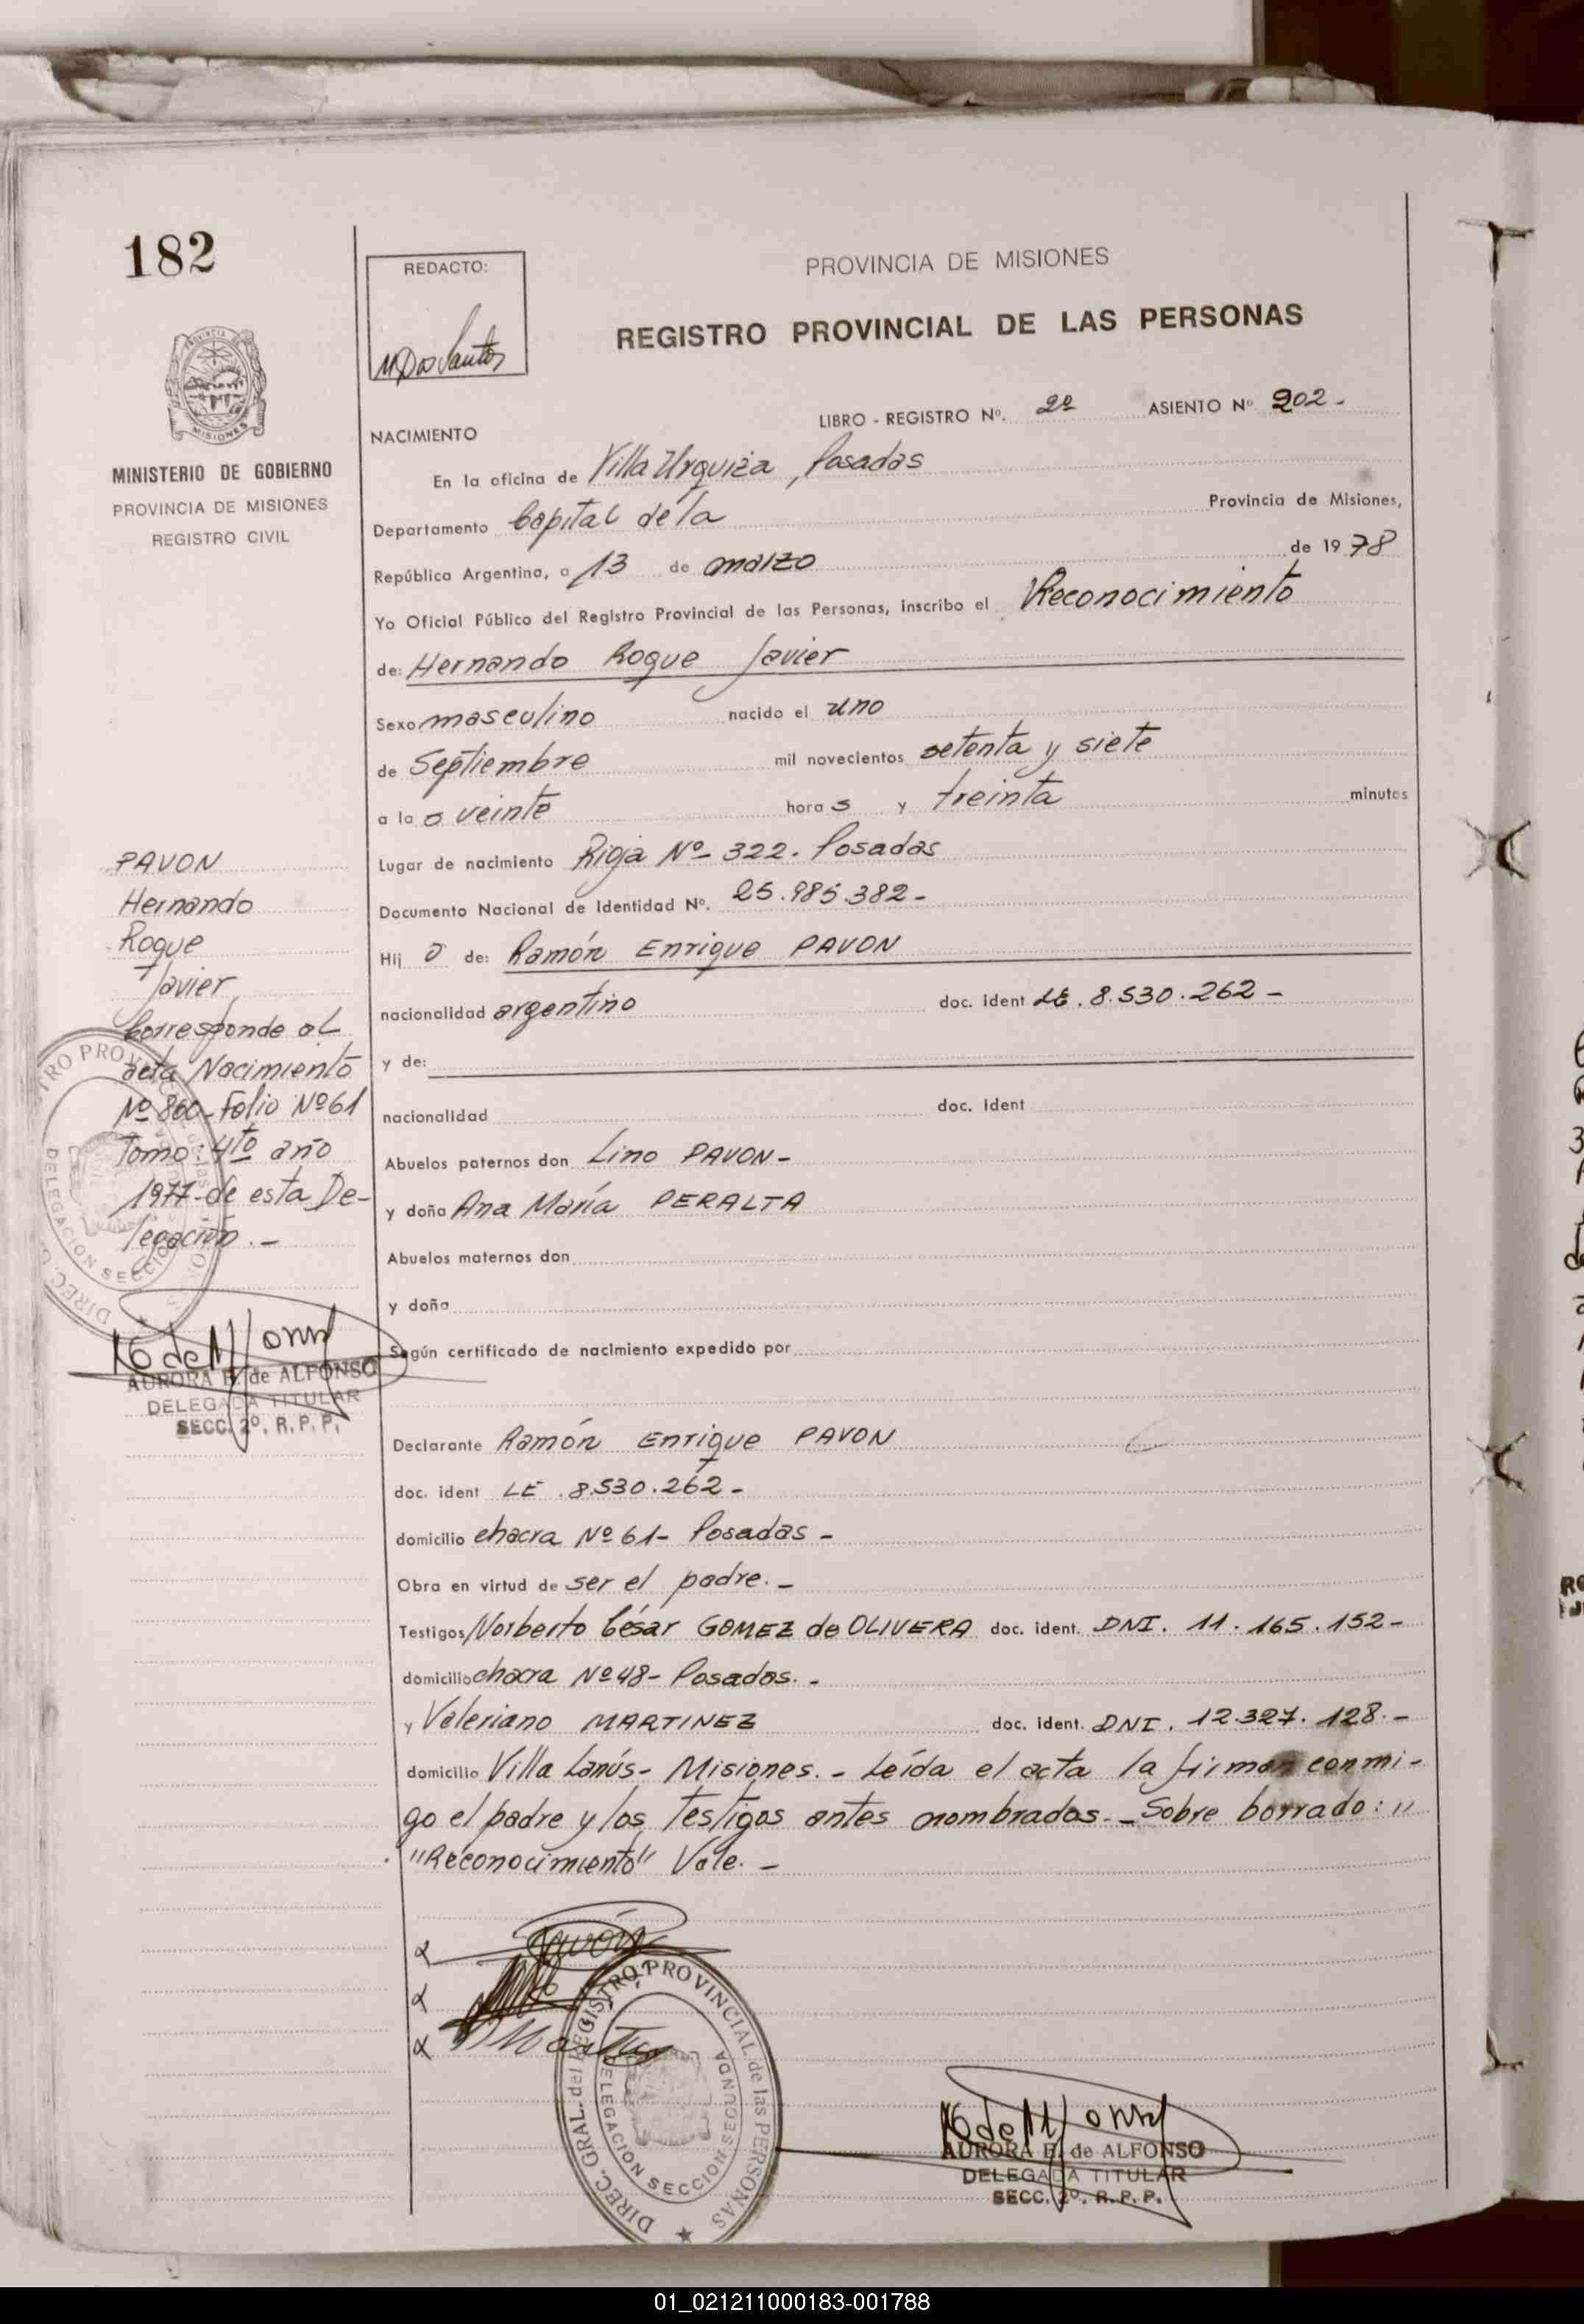 182
REDACTO:
MDos Santos
PROVINCIA DE MISIONES
REGISTRO PROVINCIAL DE LAS PERSONAS
MISIONES
MINISTERIO DE GOBIERNO
PROVINCIA DE MISIONES
REGISTRO CIVIL
LIBRO - REGISTRO Nº. 2º ASIENTO Nº 202.-
NACIMIENTO
En la oficina de Villa Urquiza, Posadas
Departamento Capital de la Provincia de Misiones,
República Argentina, a 13 de marzo de 1978
Yo Oficial Público del Registro Provincial de las Personas, inscribo el Reconocimiento
de: Hernando Roque Javier
Sexo masculino nacido el uno
de Septiembre mil novecientos setenta y siete
a las veinte horas y treinta minutos
Lugar de nacimiento Rioja Nº 322. Posadas
Documento Nacional de Identidad Nº. 25.985.382-
Hijo de: Ramón Enrique PAVON
nacionalidad argentino doc. ident LE. 8.530.262-
y de:
nacionalidad doc. ident
Abuelos paternos don Lino PAVON-
y doña Ana María PERALTA
Abuelos maternos don
y doña
Según certificado de nacimiento expedido por
Declarante Ramón Enrique PAVON
doc. ident LE .8.530.262-
domicilio chacra Nº 61- Posadas-
Obra en virtud de ser el padre.-
Testigos Norberto César GOMEZ de OLIVERA doc. ident. DNI. 11.165.152-
domicilio chacra Nº 48- Posadas.-
y Valeriano MARTINEZ doc. ident. DNI. 12.327.128.-
domicilio Villa Lanús- Misiones.- Leída el acta la firman conmi-
go el padre y los testigos antes nombrados.- Sobre borrado: "
"Reconocimiento" Vale.-
PAVON
Hernando
Roque
Javier
Corresponde al
acta Nacimiento
Nº 860-Folio Nº 61
Tomo: 4to año
1977-de esta De-
legación.-
AURORA E. de ALFONSO
DELEGADA TITULAR
SECC. 2º. R. P. P.
Pavón
DIREC. GRAL. del REGISTRO PROVINCIAL de las PERSONAS
DELEGACION SECCION SEGUNDA
AURORA E. de ALFONSO
DELEGADA TITULAR
SECC. 2º. R. P. P.
01_021211000183-001788